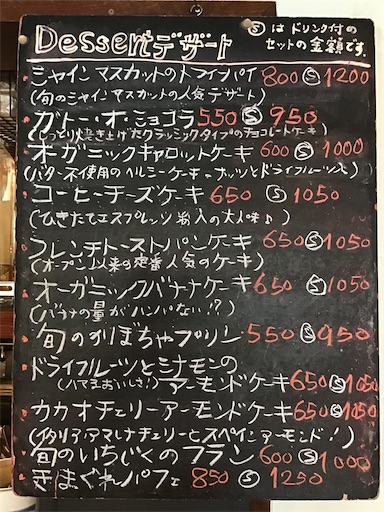 Dessert デザート
Ⓢはドリンク付の
セットの金額です。
シャインマスカットのトライフル 800 Ⓢ 1200
(旬のシャインマスカットの人気デザート)
ガトー・オ・ショコラ 550 Ⓢ 950
(しっとり焼き上げたクラッシックタイプのチョコレートケーキ)
オーガニックキャロットケーキ 600 Ⓢ 1000
(バター不使用のヘルシーケーキ ナッツとドライフルーツ入)
コーヒーチーズケーキ 650 Ⓢ 1050
(ひきたてエスプレッソ 入の大人味♪)
フレンチトーストパンケーキ 650 Ⓢ 1050
(オープン以来の定番人気のケーキ)
オーガニックバナナケーキ 650 Ⓢ 1050
(バナナの量がハンパない!?)
旬のかぼちゃプリン 550 Ⓢ 950
ドライフルーツとシナモンの
(ハマるおいしさ!) アーモンドケーキ 650 Ⓢ 1050
カカオチェリーアーモンドケーキ 650 Ⓢ 1050
(イタリアアマレナチェリーとスペインアーモンド!)
旬のいちじくのフラン 600 Ⓢ 1000
きまぐれパフェ 850 Ⓢ 1250